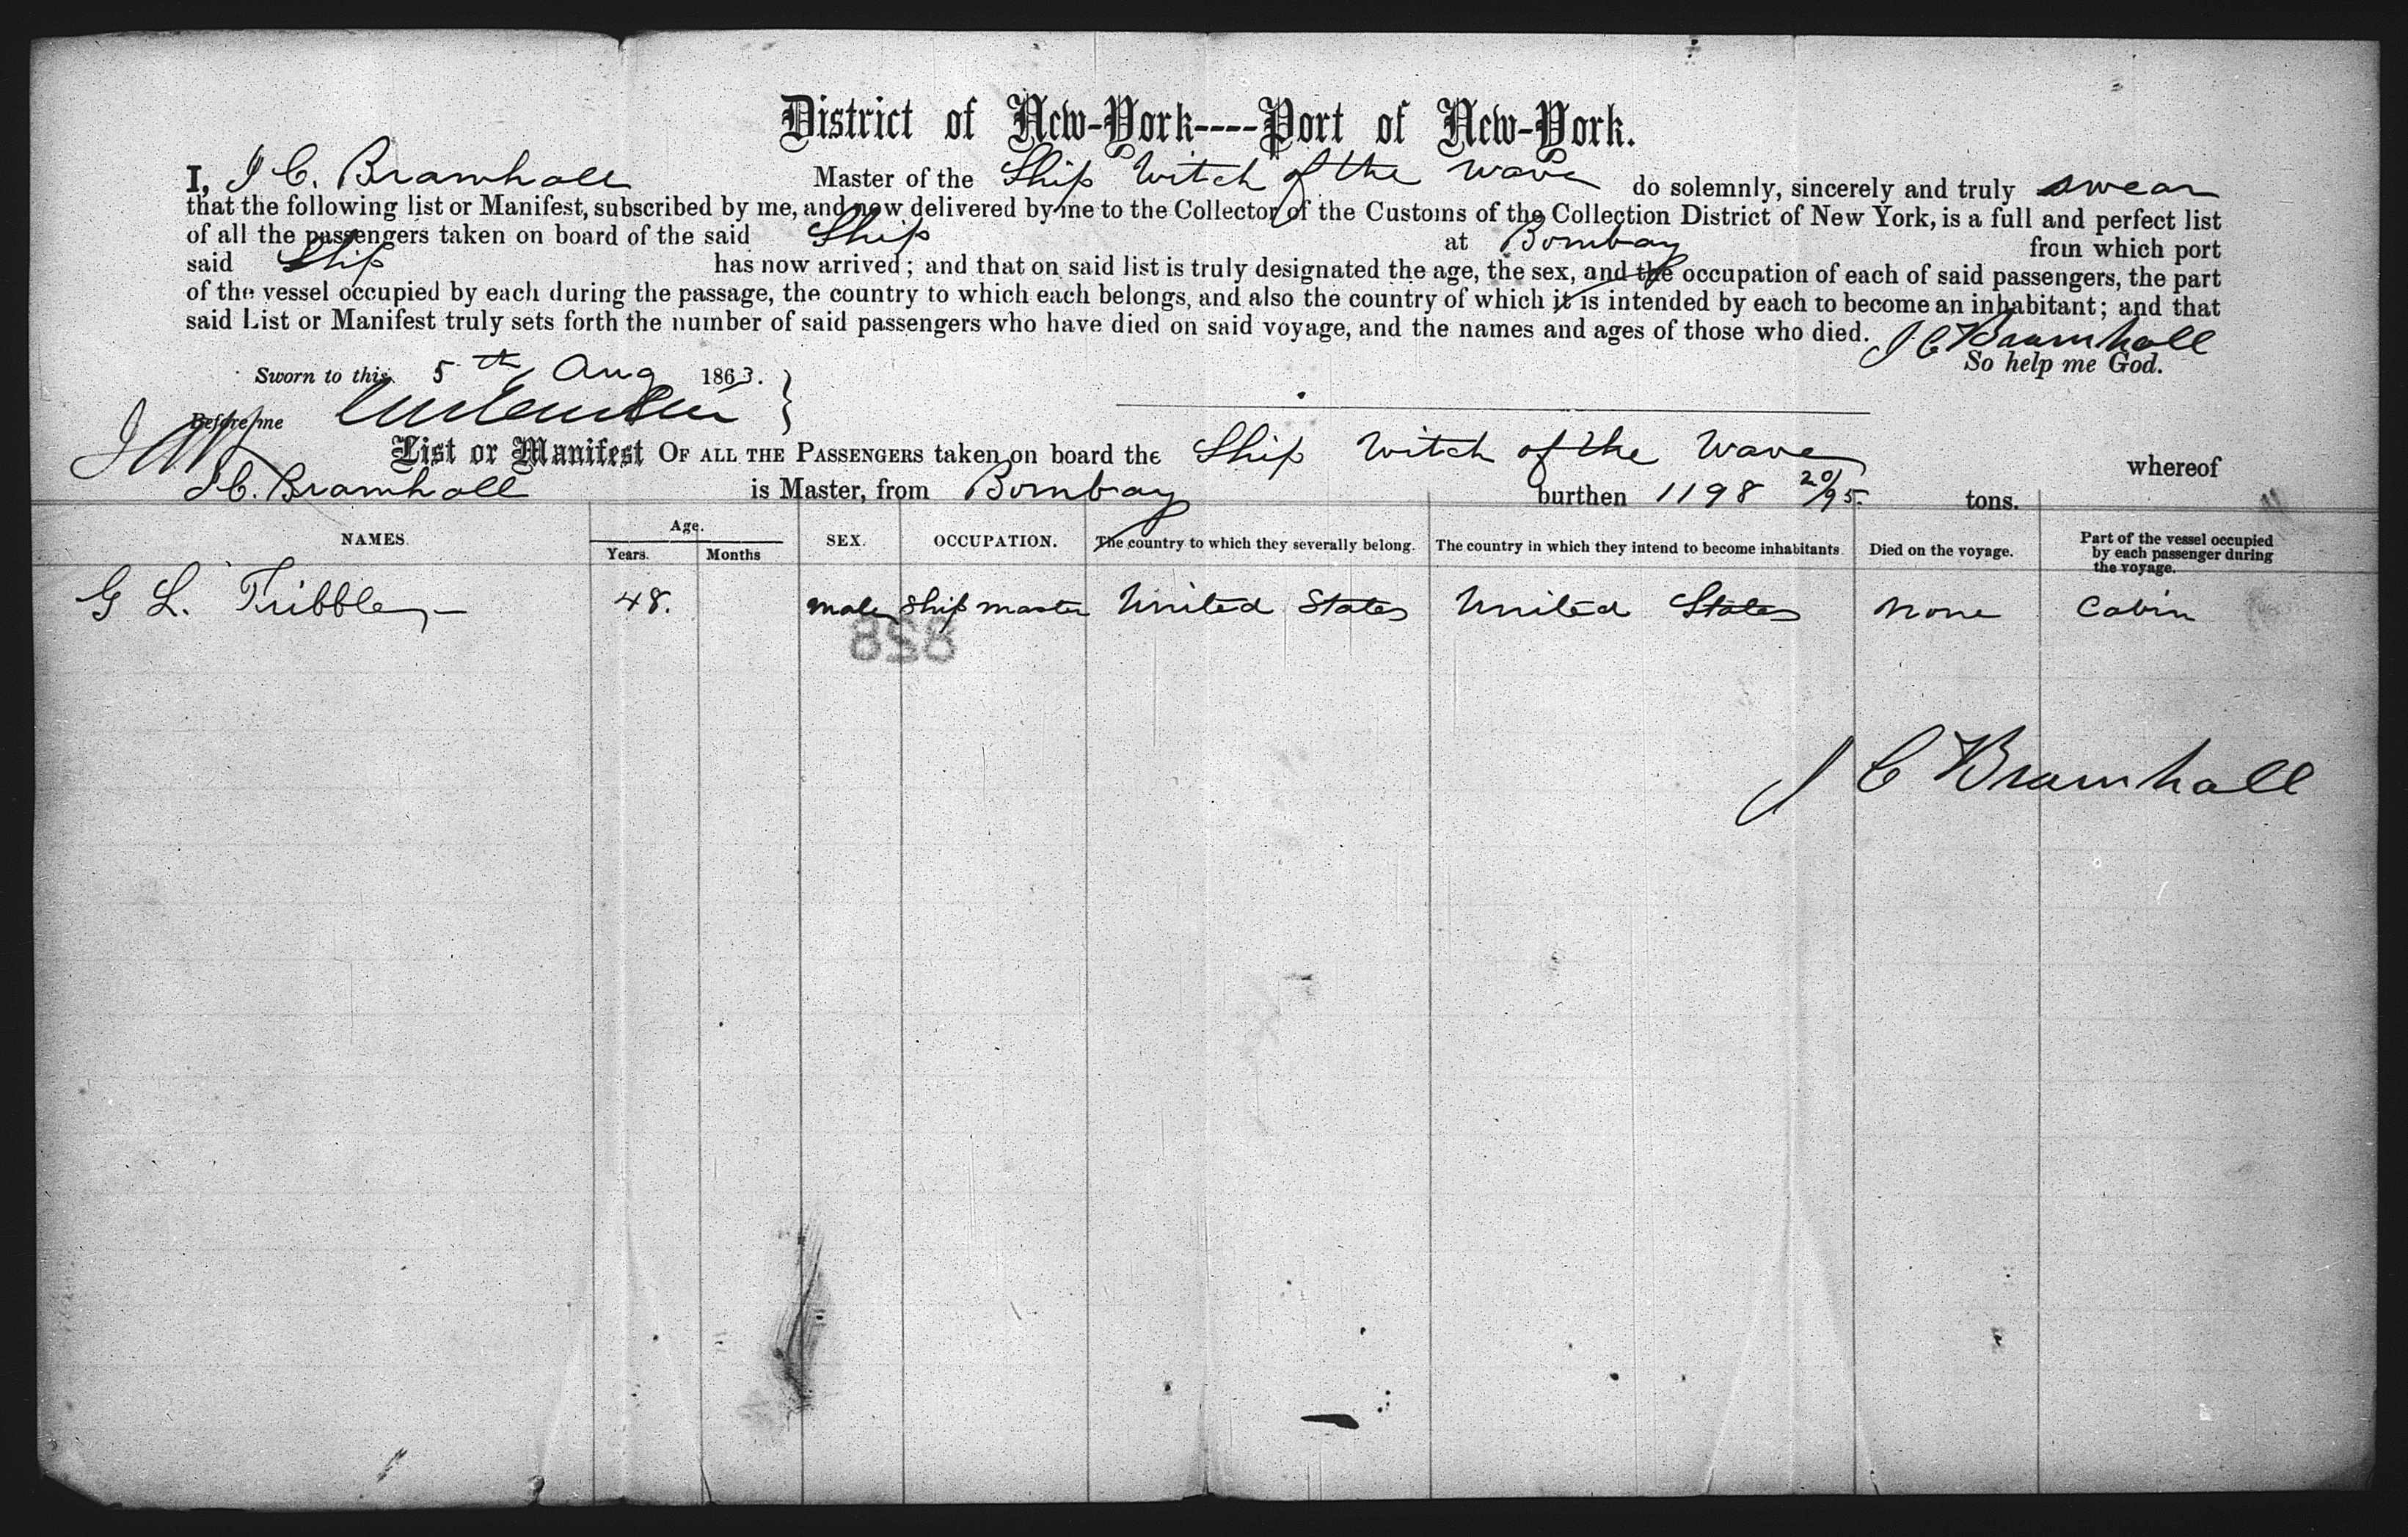 District of New-York----Port of New-York.
I, J C. Bramhall Master of the Ship Witch of the Wave do solemnly, sincerely and truly swear
that the following list or Manifest, subscribed by me, and now delivered by me to the Collector of the Customs of the Collection District of New York, is a full and perfect list
of all the passengers taken on board of the said Ship at Bombay from which port
said Ship has now arrived; and that on said list is truly designated the age, the sex, and the occupation of each of said passengers, the part
of the vessel occupied by each during the passage, the country to which each belongs, and also the country of which it is intended by each to become an inhabitant; and that
said List or Manifest truly sets forth the number of said passengers who have died on said voyage, and the names and ages of those who died. J C Bramhall
So help me God.
Sworn to this 5th Aug 1863.
Before me
List or Manifest OF ALL THE PASSENGERS taken on board the Ship Witch of the Wave whereof
J C. Bramhall is Master, from Bombay burthen 1198 20/95. tons.
NAMES. Age. Years. Months SEX. OCCUPATION. The country to which they severally belong. The country in which they intend to become inhabitants. Died on the voyage. Part of the vessel occupied by each passenger during the voyage.
G L. Tribble 48. male Ship master United States United States None Cabin
828
J C Bramhall